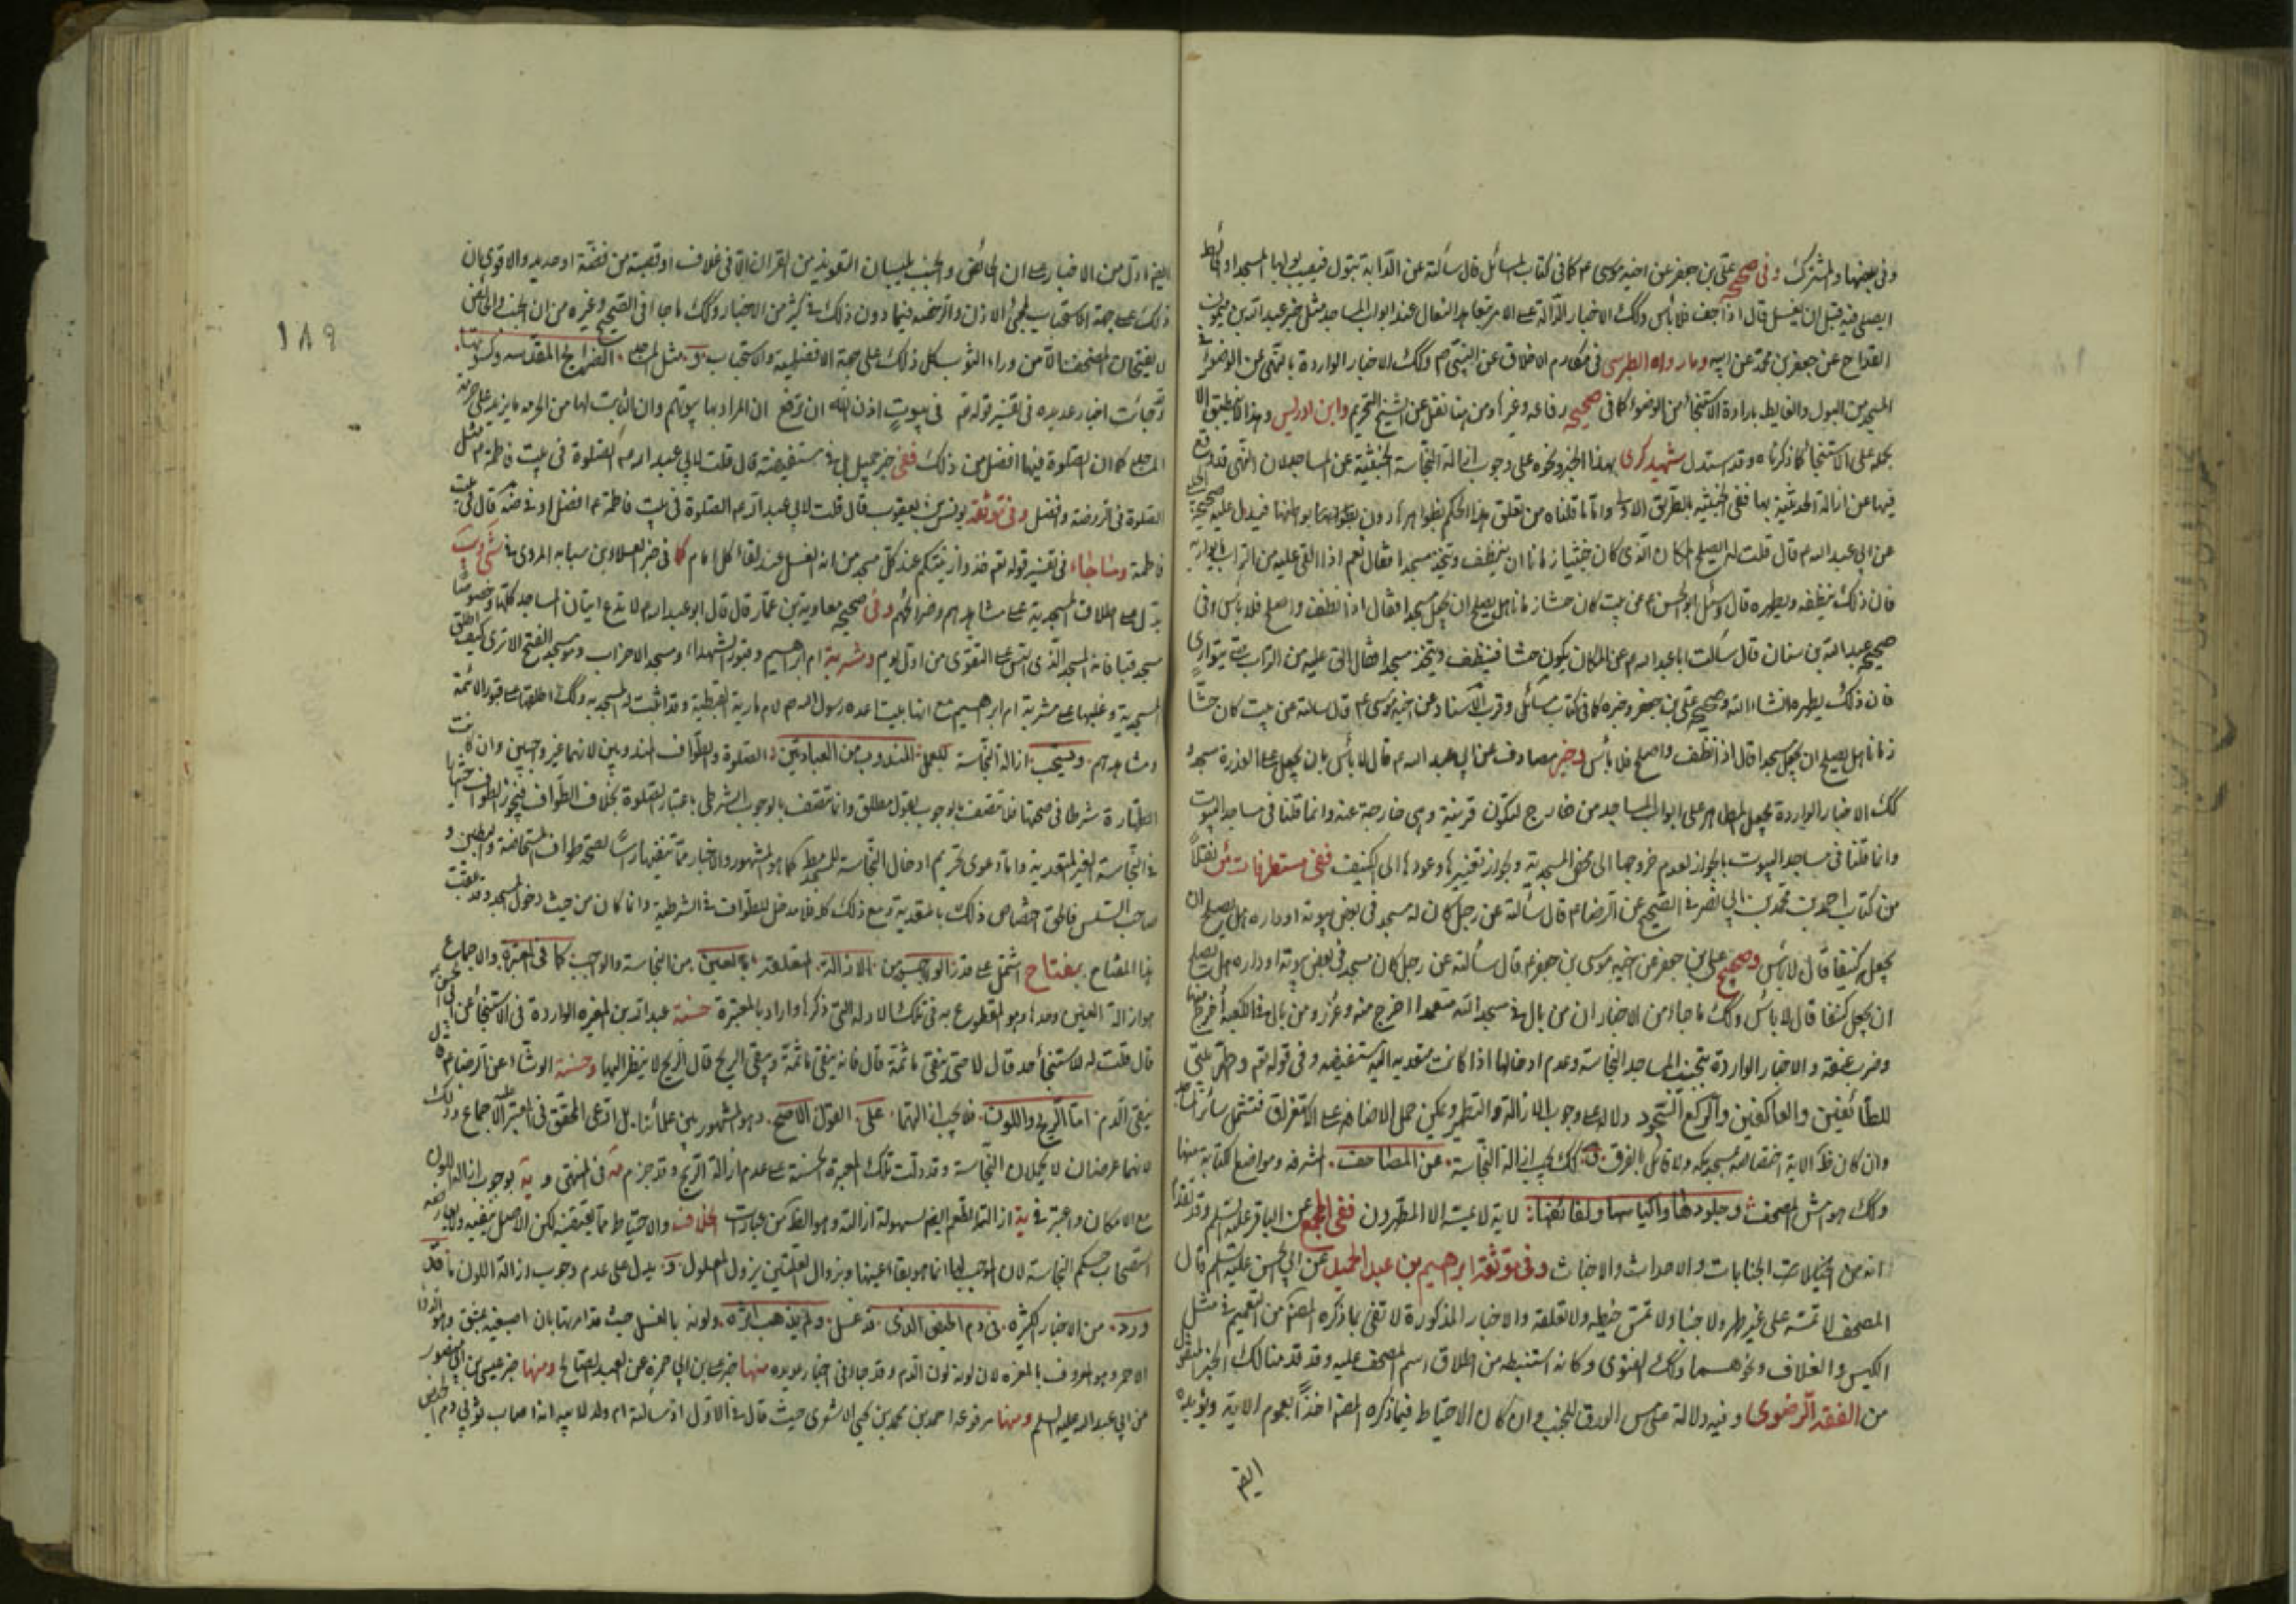 وفى بعضها والمشترك وفى صحيح على بن جعفر عن اخيه موسى ع كما فى كتاب المسائل قال سألته عن الدابة تبول فيصيب بولها المسجد او حائطه
ايصلى فيه قبل ان يغسل قال اذا جف فلا بأس وكك الاخبار الدالة على الامر بتعاهد النعال عند ابواب المساجد مثل خبر عبد الله بن ميمون
القداح عن جعفر بن محمد عن ابيه وما رواه الطبرسى فى مكارم الاخلاق عن النبى ص وكك الاخبار الواردة بالنهى عن الوضوء فى
المسجد من البول والغايط بارادة الاستنجاء من الوضوء كما فى صحيح رفاعه وغيرها ومن هنا نقل عن الشيخ التحريم وابن ادريس وهذا لا ينطبق الا
بحمله على الاستنجاء كما ذكرناه وقد استدل شهيد كرى بهذا الخبر ونحوه على وجوب ازالة النجاسة الخبثية عن المساجد لان النهى قد وقع
فيها عن ازالة الحدثية بها ففى الخبثيه بالطريق الاولى واما ما قلناه من تعلق هذا الحكم بظواهرها دون بطونها فيدل عليه صحيحة الحلبى
عن ابى عبد الله ع قال قلت له ايصلح المكان الذى كان حشا زمانا ان ينظف ويتخذ مسجدا فقال نعم اذا القى عليه من التراب ما يواريه
فان ذلك ينظفه ويطهره قال وسئل ابو الحسن ع عن بيت كان حشا زمانا هل يصلح ان يجعل مسجدا فقال اذا نظف واصلح فلا باس وفى
صحيح عبد الله بن سنان قال سألت ابا عبد الله ع عن المكان يكون حشا فينظف ويتخذ مسجدا فقال القى عليه من التراب حتى يتوارى
فان ذلك يطهره انشاء الله وصحيح على بن جعفر وخبره كما فى كتاب مسائل وقرب الاسناد عن اخيه موسى ع قال سالته عن بيت كان حشّا
زمانا هل يصلح ان يجعل مسجدا قال اذا نظف واصلح فلا بأس وخبر مصادف عن ابى عبد الله ع قال لا بأس بان يجعل على العذرة مسجد و
كك الاخبار الواردة بجعل المطاهر على ابواب المساجد من خارج لتكون قريبة وهى خارجة عنه وانما قلنا فى مساجد البيوت
وانما قلنا فى مساجد البيوت بالجواز لعدم خروجها الى محض المسجدية وبجواز تغييرها وعودها الى الكنيف ففى مستطرفات ئر نقلا
من كتاب احمد بن محمد بن ابى نصر فى الصحيح عن الرضا ع قال سألته عن رجل كان له مسجد فى بعض بيوته او داره هل يصلح ان
يجعل كنيفا قال لا بأس وصحيح على بن جعفر عن اخيه موسى بن جعفر ع قال سألته عن رجل كان مسجد فى بعض بيوته او داره هل يصلح
ان يجعل كنيفا قال لا باس وكك ما جاء من الاخبار ان من بال فى مسجد الله متعمدا اخرج منه وعزر ومن بال فى الكعبة أخرج منها
وضرب عنقه والاخبار الواردة بتجنب المساجد النجاسة وعدم ادخالها اذا كانت متعديه اليه مستفيضه وفى قوله تعم وطهر بيتى
للطائفين والعاكفين والركع السجود دلالة على وجوب الازالة والتطهير ويمكن حمل الاضافه على الاستغراق فتشمل سائر المساجد
وان كان ظ الاية اختصاصه بمسجد مكه ولا قائل بالفرق وكك يجب ازالة النجاسة عن المصاحف المشرفه ومواضع الكتابة منها
وكك هوامش المصحف وجلودها واكياسها ولفائفها لاية لا يمسه الا المطهرون ففى المجمع عن الباقر عليه السلم وقد تقدم
انه من الجنابات والاحداث والاخباث وفى موثقة ابرهيم بن عبد الحميد عن ابى الحسن عليه السلم قال
المصحف لا تمسه على غير طهر ولا جنبا ولا تمس خيطه ولا تعلقه والاخبار المذكورة لا تفى بما ذكره المصنف من التعميم فى مثل
الكيس والغلاف ونحوهما وكك الفتوى وكانه استنبطه من اطلاق اسم المصحف عليه وقد قدمنا لك الخبر المنقول
من الفقه الرضوى وفيه دلالة على مس الورق للجنب وان كان الاحتياط فيما ذكره المصنف اخذًا بعموم الاية ويؤيده
ايضم
١٨٩
ايضم ما دل من الاخبار على ان الحائض والجنب لا يمسان التعويذ من القران الا فى غلاف او قصبة من فضة او حديد والاقوى ان
ذلك على جهة الاستحباب لمجئ الاذن والرخصه فيما دون ذلك فى كثير من الاخبار وكك ما جاء فى الصحيح وغيره من ان الجنب والحائض
لا يفتحان المصحف الا من وراء الثوب كل ذلك على جهة الافضلية والاستحباب و مثل المساجد الضرايح المقدسه وكسوتها
وجائت اخبار عديده فى تفسير قوله تعم فى بيوت اذن الله ان ترفع ان المراد بها بيوتهم وان الثابت لها من الحرمه ما يزيد على حرمة
المساجد كما ان الصلوة فيها افضل من ذلك ففى خبر جميل بل فى مستفيضته قال قلت لابى عبد الله ع الصلوة فى بيت فاطمة ع مثل
الصلوة فى الروضة وافضل وفى موثقة يونس بن يعقوب قال قلت لابى عبد الله ع الصلوة فى بيت فاطمة ع افضل او فى الروضة قال فى بيت
فاطمة ومنها ما جاء فى تفسير قوله تعم خذوا زينتكم عند كل مسجد من انه الغسل عند لقاء كل امام كما فى خبر العلاء بن سيابه المروى فى
يدل على اطلاق المسجدية على مشاهدهم وضرائحهم وفى صحيح معاوية بن عمار قال قال ابو عبد الله ع لا تدع اتيان المساجد كلها وخصوصا
مسجد قبا فانه المسجد الذى اسس على التقوى من اول يوم ومشربة ام ابراهيم وقبور الشهداء ومسجد الاحزاب وهو مسجد الفتح الا ترى كيف اطلق
المسجدية وغلبها على مشربة ام ابرهيم مع انها بيت اعده رسول الله ص لام مارية القبطية وقد اثبت له المسجديه وكك اطلقها على قبور الائمة
ومشاهدهم ويستحب ازالة النجاسة للعمل المندوب من العبادتين الصلوة والطواف المندوبين لانهما غير واجبين وان كانت
الطهارة شرطا فى صحتها فلا تتصف بالوجوب بقول مطلق وانما تتصف بالوجوب الشرطى باعتبار الصلوة بخلاف الطواف
فى النجاسة الغير المتعدية واما دعوى تحريم ادخال النجاسة للمسجد مط كما هو المشهور والاخبار مما تنفيها لصحة طواف المستحاضة والمبطون و
صاحب السلس فالحق اختصاص ذلك بالمتعدية ومع ذلك كله فلا مدخل للطواف فى الشرطية وانما كان من حيث دخول المسجد وقد تمت
هذا المفتاح بمفتاح اشتمل على قدر الواجب من الازالة المتعلقة بالعين من النجاسة والواجب كما فى المعتبرة والاجماع
هو ازالة العين وحدها وهو المقطوع به فى تلك الادلة التى ذكرها واراد بالمعتبرة حسنة عبد الله بن المغيره الواردة فى الاستنجاء عن ابى الحسن ع
قال قلت له للاستنجاء حد قال لا حتى ينقى ما ثمة قال فانه ينقى ما ثمة ويبقى الريح قال الريح لا ينظر اليها وحسنة الوشاء عن الرضا ع
ينقى الدم اما الريح واللون فلا يجب ازالتهما على القول الاصح وهو المشهور بين علمائنا بل ادعى المحقق فى المعتبر عليه الاجماع وذلك
لانهما عرضان لا يحملان النجاسة وقد دلت تلك المعبرة الحسنة على عدم ازالة الريح وقد جزم مة فى المنتهى و ية بوجوب ازالة اللون
مع الامكان واعتبر فى ية ازالة الطعم ايضم لسهولة ازالته وهو الظ من عبارت الخلاف والاحتياط مما يقتضيه لكن الاصل ينفيه ولا يعارضه
استصحاب حكم النجاسة لان الموجب لها انما هو بقاء عينها وبزوال العلتين يزول المعلول و يدل على عدم وجوب ازالة اللون ما قد
ورد من الاخبار الكثيره فى دم الحيض الذى قد غسل ولم يذهب اثره ولونه بالغسل حيث قد امرتها بان اصبغيه بمشق وهو
الاحمر وهو المعروف بالمغره لان لونه لون الدم وقد جاء فى اخبار عديده منها خبر على بن ابى حمزة عن العبد الصالح ومنها خبر عيسى بن ابى منصور
عن ابى عبد الله عليه السلم ومنها مرفوعه احمد بن محمد بن يحيى الاشعرى حيث قال فى الاول اذ سالته ام ولد لابيه انه اصاب ثوبى دم الحيض